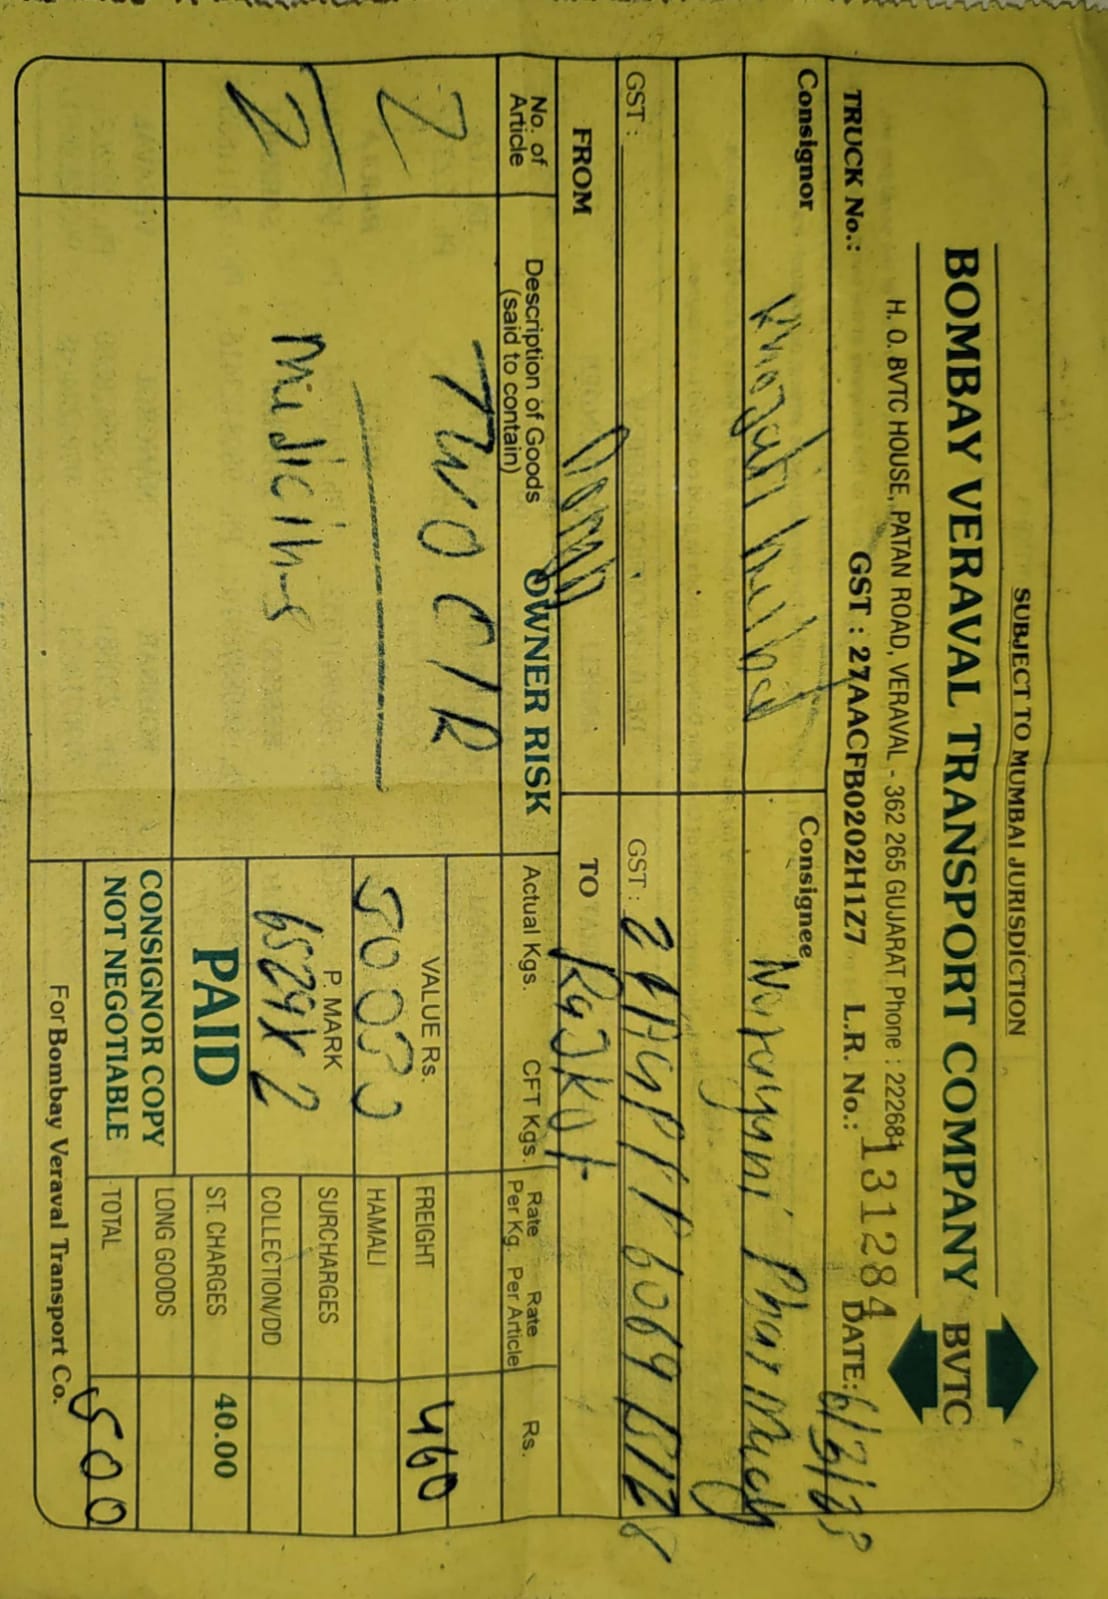 SUBJECT TO MUMBAI JURISDICTION
BOMBAY VERAVAL TRANSPORT COMPANY BVTC
H. O. BVTC HOUSE, PATAN ROAD, VERAVAL - 362 265 GUJARAT Phone : 222681
TRUCK No.: GST : 27AACFB0202H1Z7 L.R. No.: 131284 DATE:
Consignor Consignee Narayani Pharmacy
GST : GST :
FROM TO Rajkot
No. of Article Description of Goods (said to contain) OWNER RISK Actual Kgs. CFT Kgs. Rate Per Kg. Rate Per Article Rs.
2 TWO C/R VALUE Rs. FREIGHT 460
HAMALI
2 P. MARK SURCHARGES
6529 X 2 COLLECTION/DD
PAID ST. CHARGES 40.00
CONSIGNOR COPY LONG GOODS
NOT NEGOTIABLE TOTAL 500
For Bombay Veraval Transport Co.